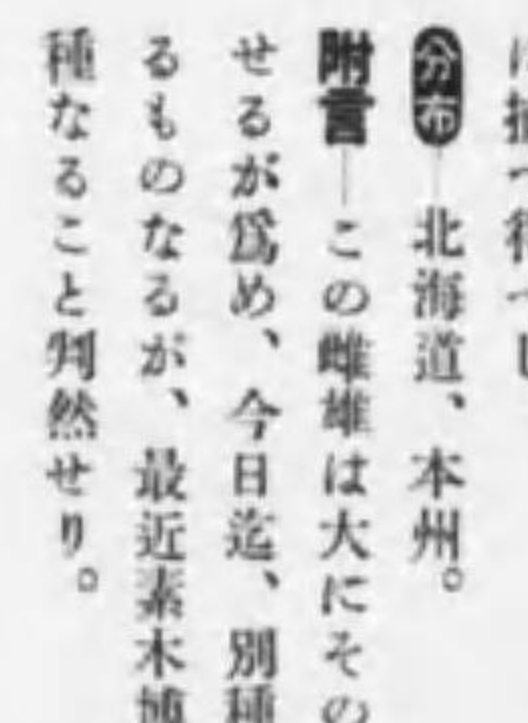 分布―北海道、本州。
附言―この雌雄は大にその
せるが爲め、今日迄、別種
るものなるが、最近素木博
種なること判然せり。